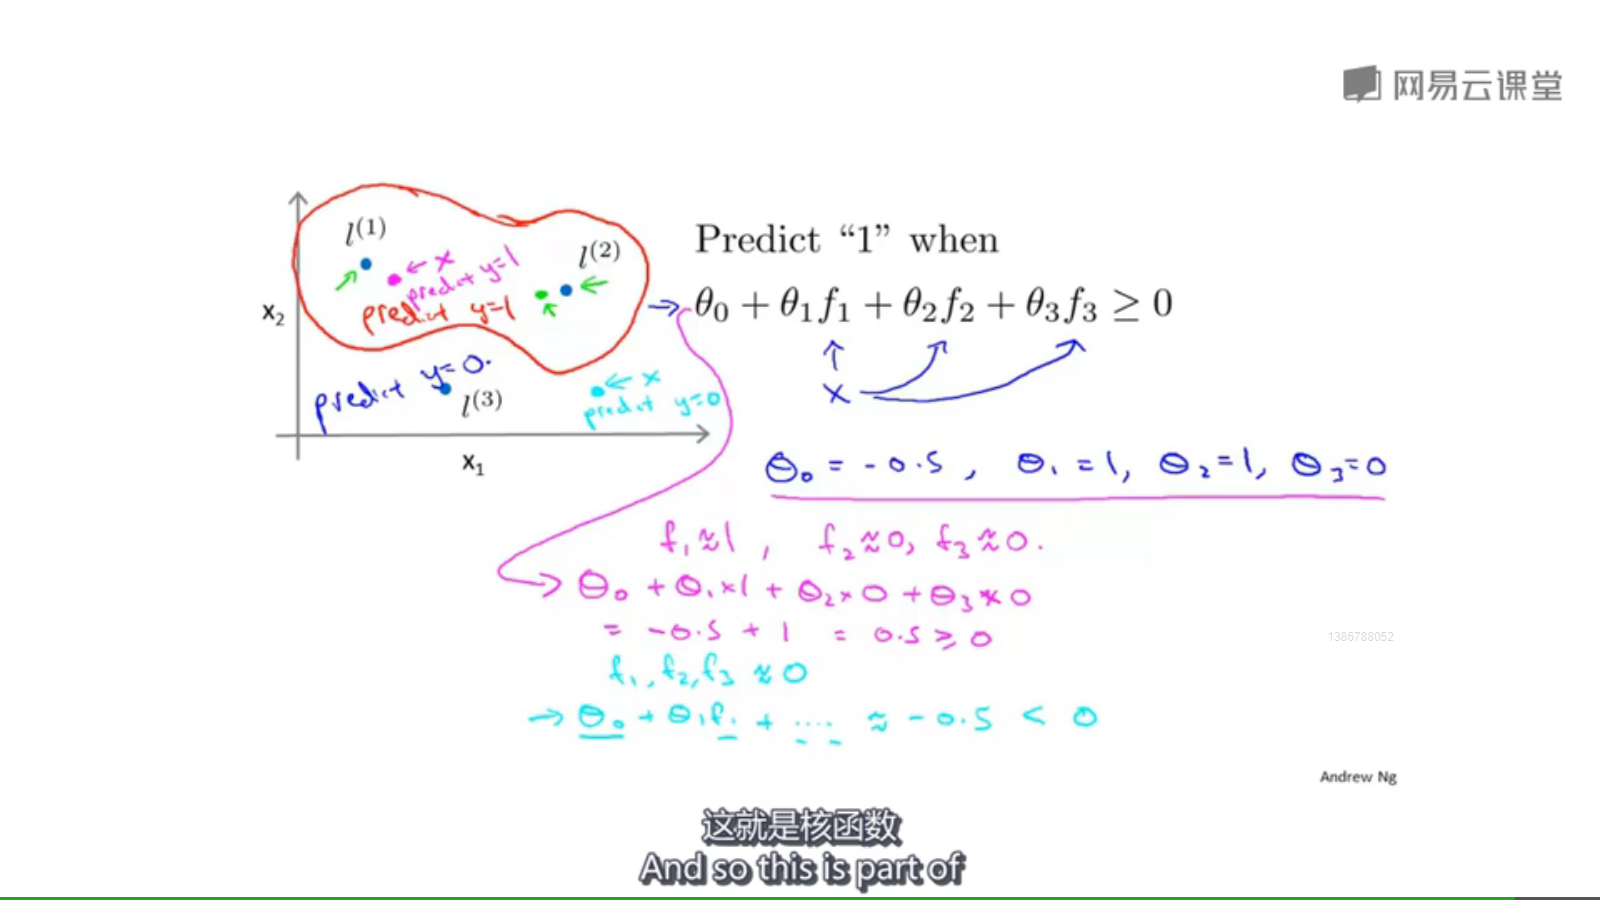 网易云课堂
l^{(1)}
l^{(2)}
← x
predict y=1
predict y=1
x₂
predict y=0.
l^{(3)}
← x
predict y=0
x₁
Predict “1” when
→ θ₀ + θ₁f₁ + θ₂f₂ + θ₃f₃ ≥ 0
x
θ₀ = -0.5, θ₁ = 1, θ₂ = 1, θ₃ = 0
f₁ ≈ 1, f₂ ≈ 0, f₃ ≈ 0.
θ₀ + θ₁×1 + θ₂×0 + θ₃×0
= -0.5 + 1 = 0.5 ≥ 0
f₁, f₂, f₃ ≈ 0
→ θ₀ + θ₁f₁ + .... ≈ -0.5 < 0
1386788052
Andrew Ng
这就是核函数
And so this is part of